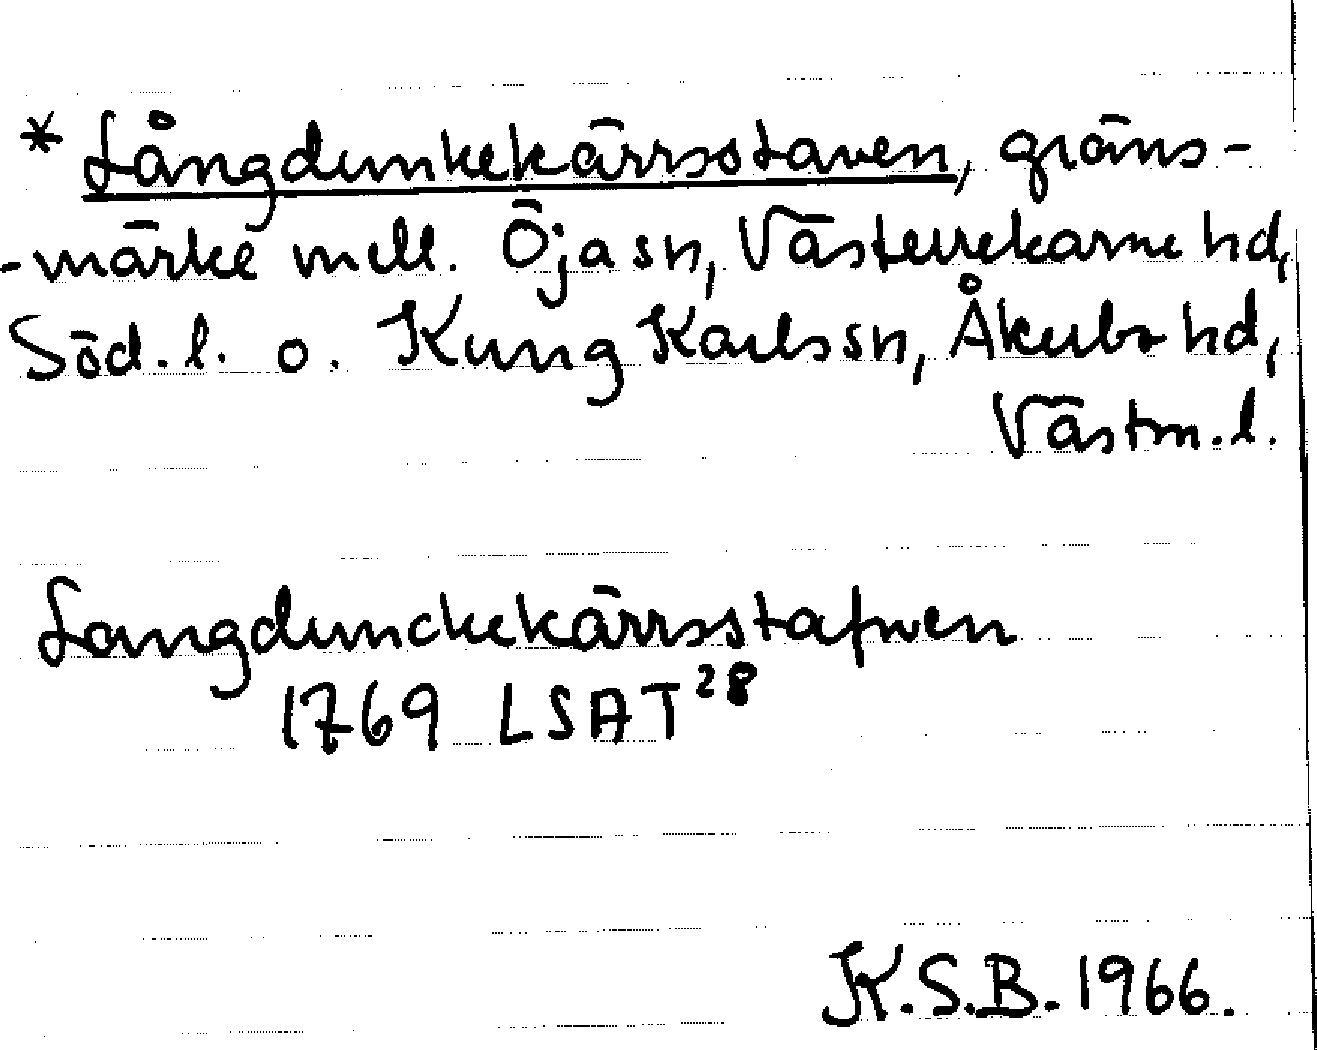 * Långdunkekärrsstaven, gräns-
-märke mell. Öja sn, Västerrekarne hd,
Söd. l. o. Kung Karls sn, Åkerbo hd,
Västm. l.
Langdunckekärrsstafwen
1769 LSA T²⁸
K.S.B. 1966.